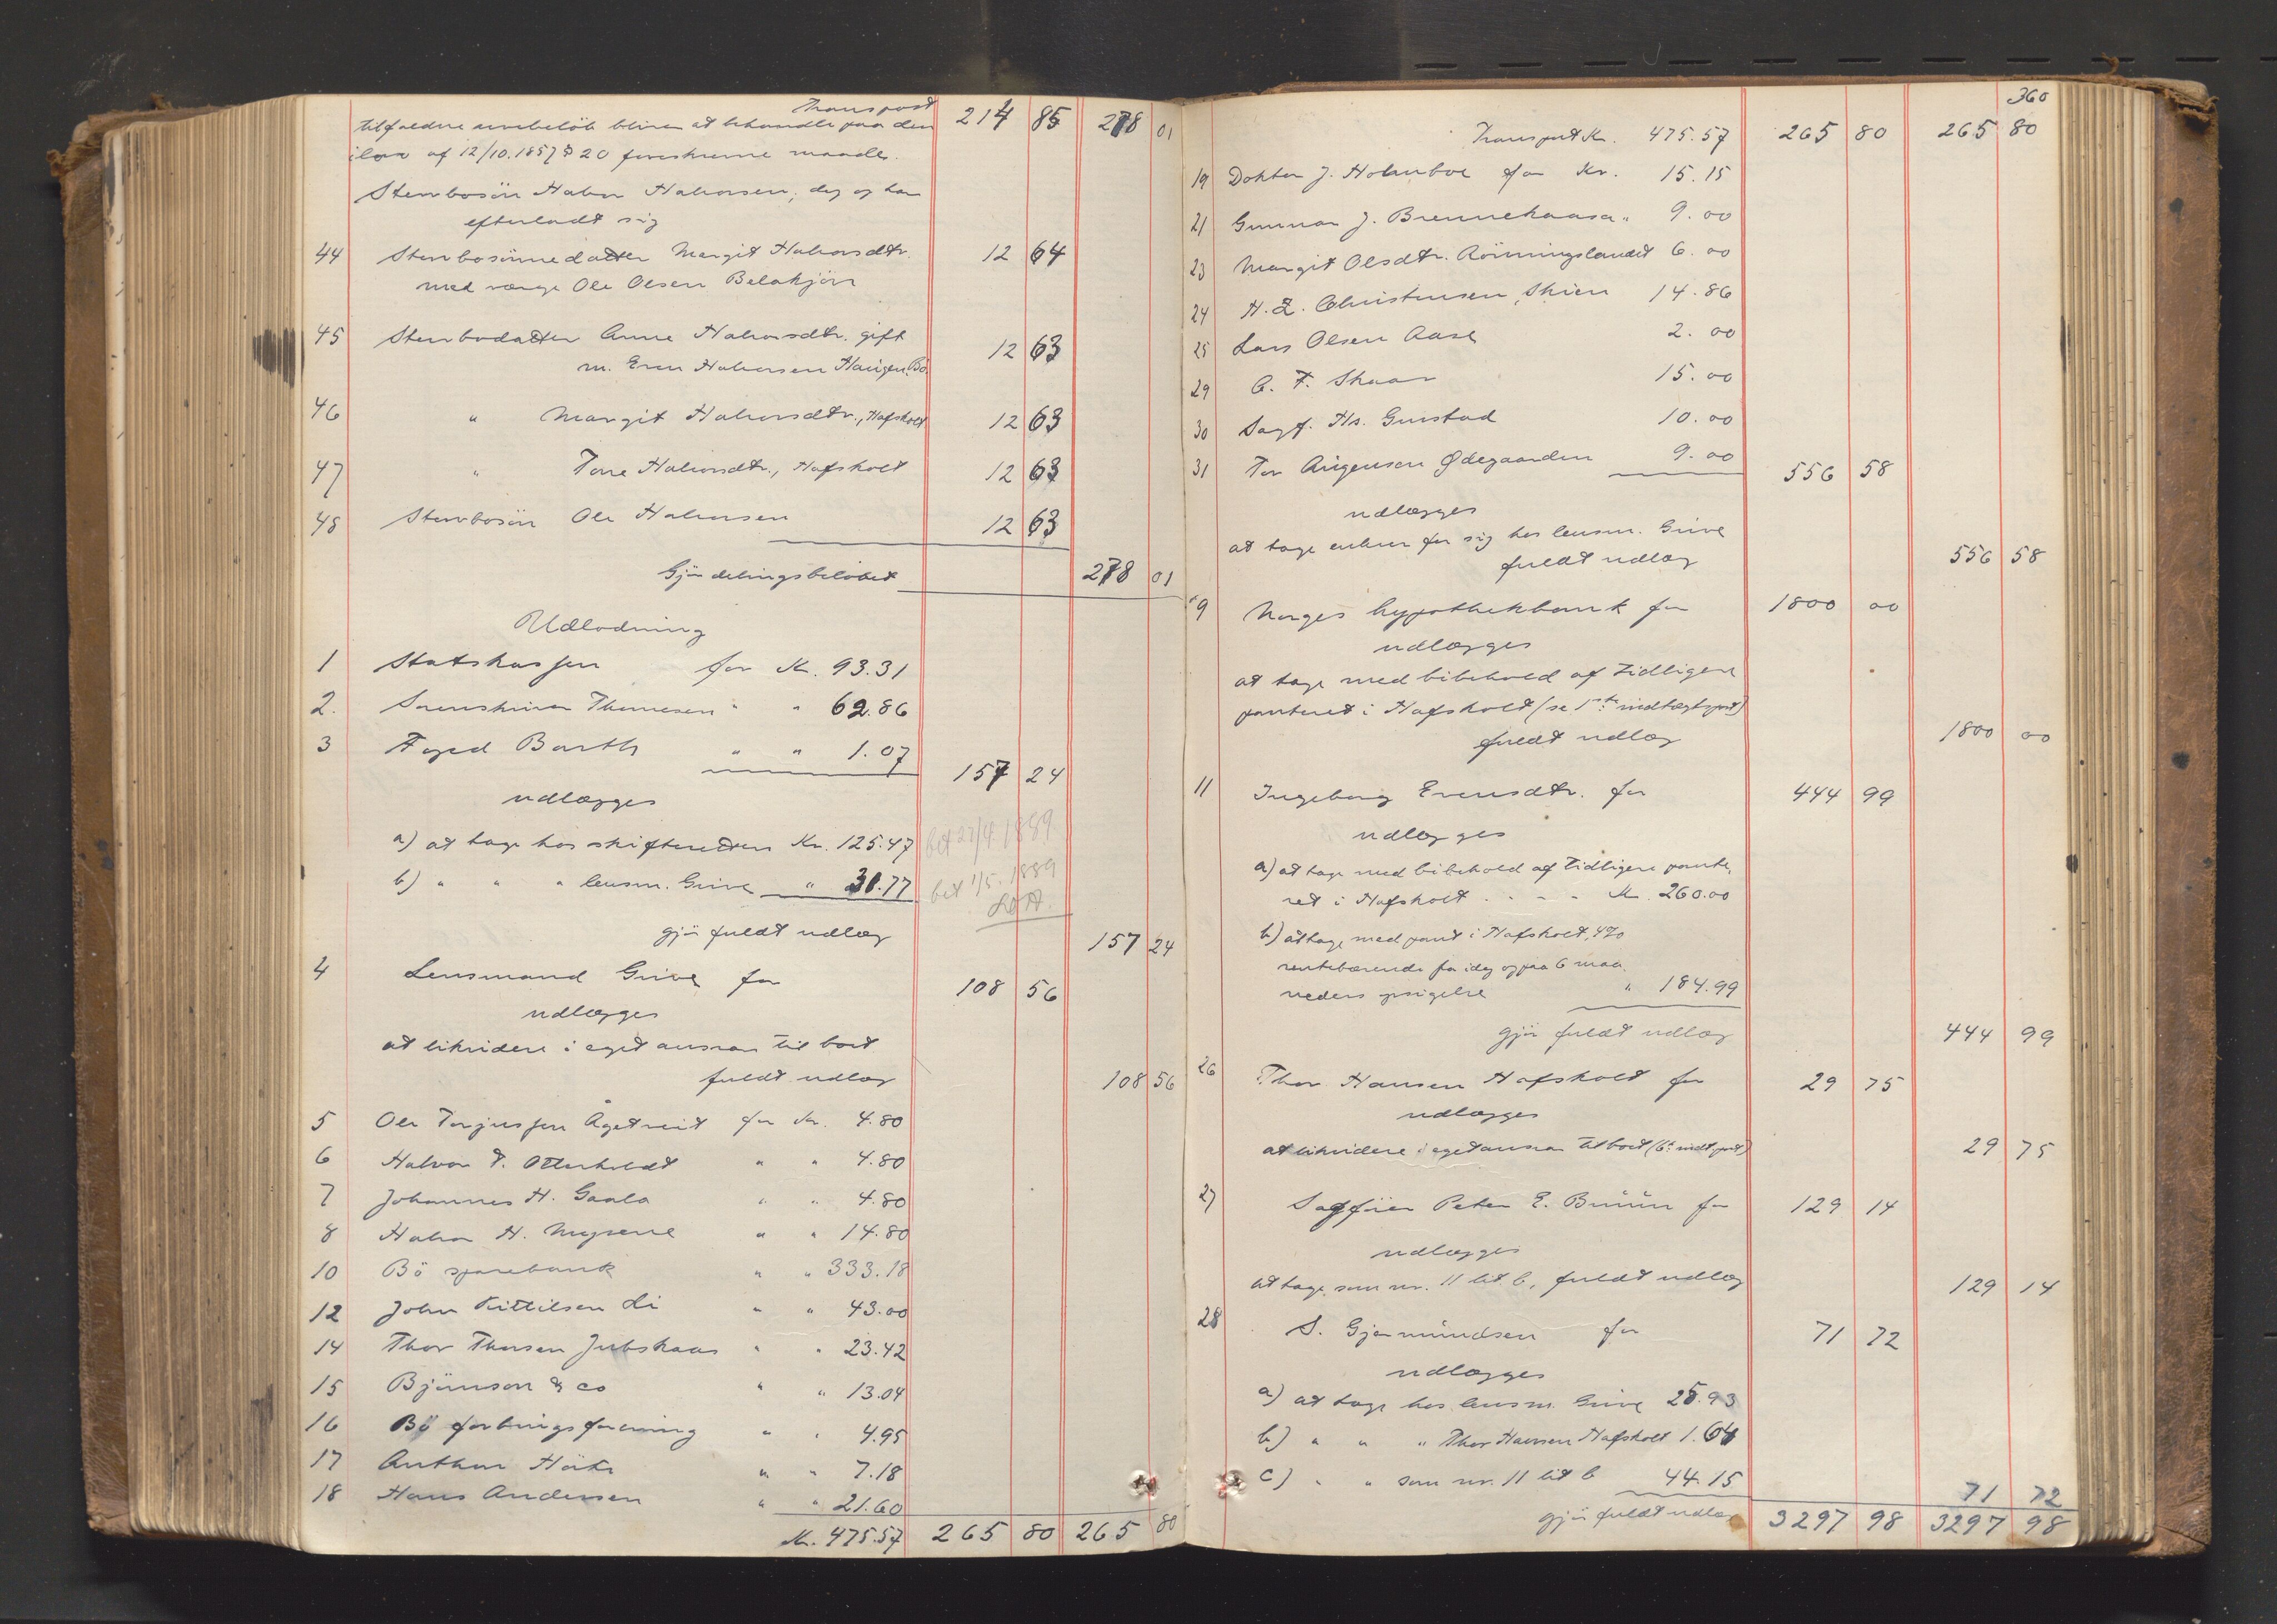 Transport 214 85 278 01
tilfaldne arvebeløb bliver at behandle paa den
i lov af 12/10.1857 § 20 foreskrevne maade.
Stervbosön Halvor Halvorsen, dög og har
efterladt sig
44 Stervbosönnedatter Margit Halvorsdtr. 12 64
med værge Ole Olsen Belakjön
45 Stervbodatter Anne Halvorsdtr. gift
m. Even Halvorsen Haugen, Bö. 12 63
46 " Margit Halvorsdtr., Hafsholt 12 63
47 " Tone Halvorsdtr., Hafsholt 12 63
48 Stervbosön Ole Halvorsen 12 63
Gjör delingsbelöbet 278 01
Udlodning
1 Statskassen for Kr. 93.31
2. Sorenskriver Thomesen " " 62.86
3 Foged Barth " " 1.07
157 24
udlægges
a) at tage hos skifteretten Kr. 125.47 bet 27/4 1889
b) " " " lensm. Grive " 31.77 bet 1/5. 1889
gjör fuldt udlæg 157 24
4 Lensmand Grive for 108 56
udlægges
at likvidere i eget ansvar til boet
fuldt udlæg 108 56
5 Ole Torjussen Ågetveit for Kr. 4.80
6 Halvor T. Otterholdt " " 4.80
7 Johannes H. Gaala " " 4.80
8 Halvor H. Mysene " " 14.80
10 Bö sparebank " " 333.18
12 John Kittilsen Li " " 43.00
14 Thor Thorsen Jubskaas " " 23.42
15 Björnson & co " " 13.04
16 Bö forbrugsforening " " 4.95
17 Anthon " " 7.18
18 Hans Andersen " " 21.60
Kr. 475.57 265 80 265 80
360
Transport Kr. 475.57 265 80 265 80
19 Doktor J. Holmboe for Kr. 15.15
21 Gunnar J. Brennekaasa " 9.00
23 Margit Olsdtr. Rönningslandet 6.00
24 H. Z. Christensen, Skien 14.86
25 Lars Olsen Aase 2.00
29 C. F. Skaar 15.00
30 Sagf. Hs. Gurstad 10.00
31 Tor Augensen Ødegaarden 9.00
556 58
udlægges
at tage enhver for sig hos lensm. Grive
fuldt udlæg 556 58
9 Norges hypothekbank for 1800 00
udlægges
at tage med bibehold af tidligere
panteret i Hafsholt (se 1ste indtægtspost)
fuldt udlæg 1800 00
11 Ingeborg Evensdtr. for 444 99
udlægges
a) at tage med bibehold af tidligere pante-
ret i Hafsholt . . - - Kr. 260.00
b) at tage med pant i Hafsholt, 4%
rentebærende fra idag og paa 6 maa-
neders opsigelse " 184.99
gjör fuldt udlæg 444 99
26 Thor Hansen Hafsholt for 29 75
udlægges
at likvidere i eget ansvar til boet (6te indt.post) 29 75
27 Sagförer Peter E. Bruun for 129 14
udlægges
at tage som nr. 11 lit b, fuldt udlæg 129 14
28 S. Gjermundsen for 71 72
udlægges
a) at tage hos lensm. Grive 25.93
b) " " " Thor Hansen Hafsholt 1.64
c) " " som nr. 11 lit b 44.15
71 72
gjör fuldt udlæg 3297 98 3297 98